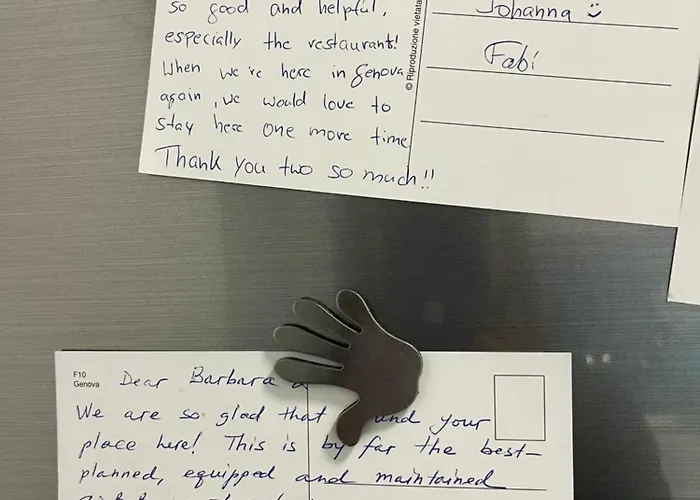 so good and helpful,
especially the restaurant!
When we're here in Genova
again, we would love to
stay here one more time.
Thank you two so much!!
© Riproduzione vietata
Johanna
Fabi
F10
Genova
Dear Barbara
We are so glad that and your
place here! This is by far the best-
planned, equipped and maintained